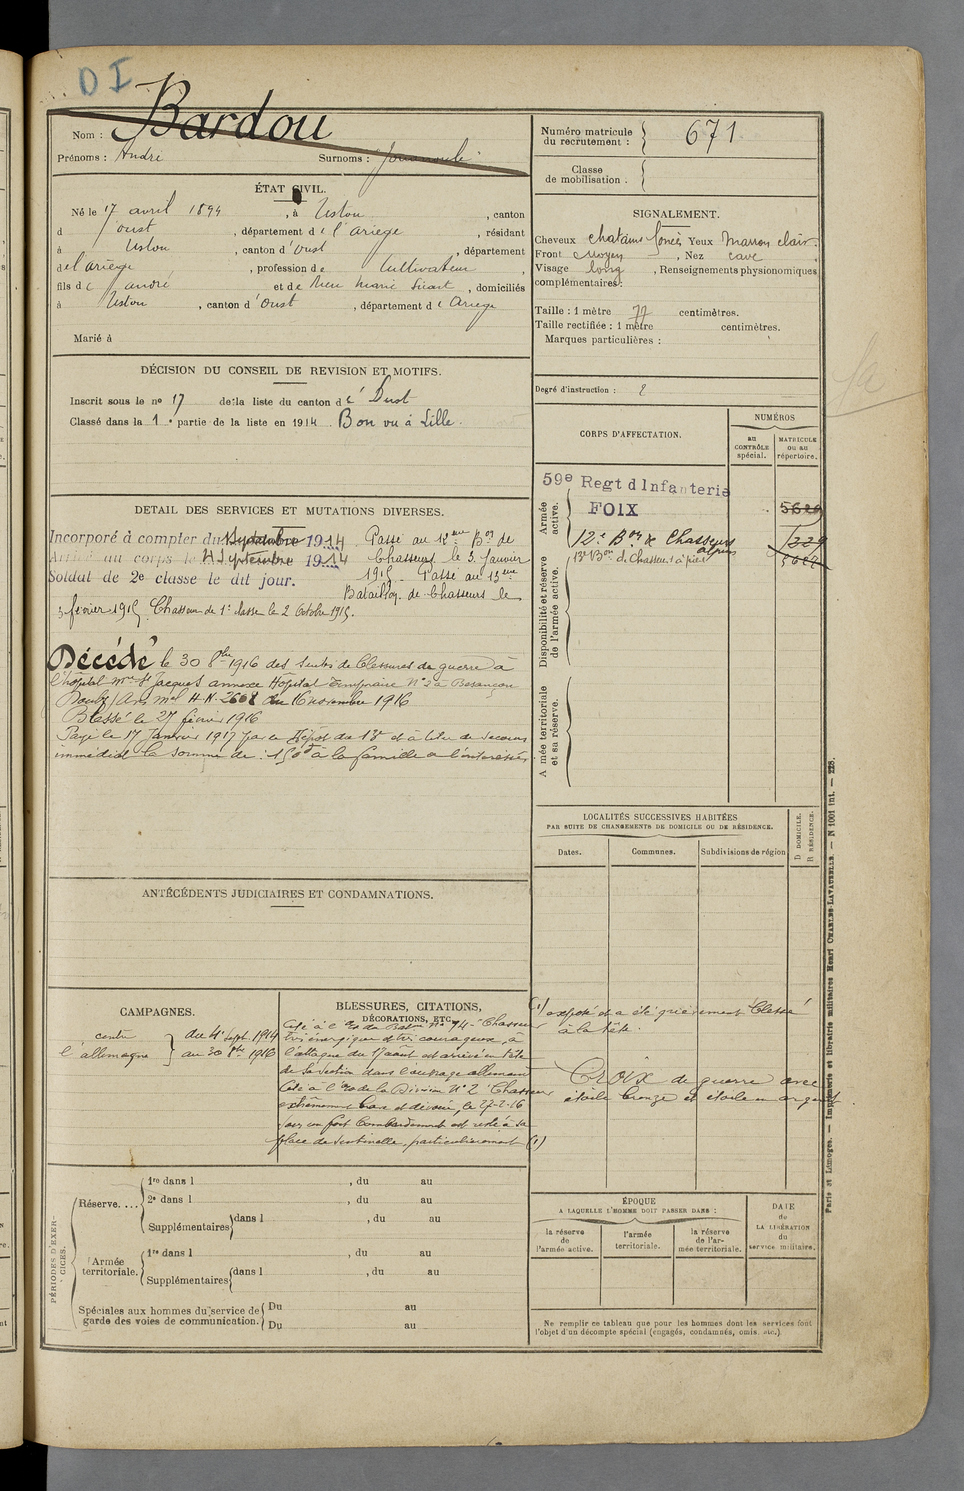 D I
Nom : Bardou
Prénoms : André Surnoms :
ÉTAT CIVIL.
Né le 17 avril 1894, à Ustou, canton
d'oust, département de l'ariege, résidant
à Ustou, canton d'oust, département
de l'ariege, profession de Cultivateur,
fils de André et de Marie, domiciliés
à Ustou, canton d'oust, département de Ariege
Marié à
DÉCISION DU CONSEIL DE REVISION ET MOTIFS.
Inscrit sous le no 17 de la liste du canton d'Oust
Classé dans la 1e partie de la liste en 1914. Bon vu à Lille.
DETAIL DES SERVICES ET MUTATIONS DIVERSES.
Incorporé à compter du Septembre 1914 Passé au 12eme Bon de
Arrivé au corps le 4 Septembre 1914 Chasseurs le 3 Janvier
Soldat de 2e classe le dit jour. 1915. Passé au 13eme
Bataillon de Chasseurs le
3 février 1915. Chasseur de 1e classe le 2 Octobre 1915.
Décédé le 30 8bre 1916 des suites de blessures de guerre à
l'hôpital St Jacques annexe Hôpital temporaire No 3 à Besançon
Doubs / Avis mel H.N. 2668 du 16 novembre 1916
Blessé le 27 février 1916
Payé le 17 Janvier 1917 par le Dépôt du 13e et à titre de secours
immédiat la somme de : 150f à la famille de l'intéressé
ANTÉCÉDENTS JUDICIAIRES ET CONDAMNATIONS.
CAMPAGNES.
contre l'allemagne } du 4 Sept. 1914
au 30 8bre 1916
BLESSURES, CITATIONS,
DÉCORATIONS, ETC.
Cité à l'O. du Baton No 74 "Chasseur
très énergique et très courageux, à
l'attaque du 17 août est arrivé en tête
de sa section dans l'ouvrage allemand
Cité à l'O. de la Division No 2 "Chasseur
extrêmement brave et dévoué, le 27-2-16
sous un fort bombardement est resté à sa
place de sentinelle, particulièrement (1)
PÉRIODES D'EXERCICES.
Réserve.... 1re dans l , du au
2e dans l , du au
Supplémentaires dans l , du au
Armée territoriale. 1re dans l , du au
Supplémentaires dans l , du au
Spéciales aux hommes du service de garde des voies de communication. Du au
Du au
Numéro matricule du recrutement : 671
Classe de mobilisation.
SIGNALEMENT.
Cheveux chatains foncés Yeux Marron clair.
Front Moyen, Nez cave,
Visage long, Renseignements physionomiques
complémentaires :
Taille : 1 mètre 77 centimètres.
Taille rectifiée : 1 mètre centimètres.
Marques particulières :
Degré d'instruction : 2
CORPS D'AFFECTATION.
NUMÉROS
au CONTRÔLE spécial.
MATRICULE ou au répertoire.
Armée active.
59e Regt d'Infanterie
FOIX 5620
12e Bon de Chasseurs alpins 1229
13e Bon de Chasseurs à pied 5622
Disponibilité et réserve de l'armée active.
Armée territoriale et sa réserve.
LOCALITÉS SUCCESSIVES HABITÉES
PAR SUITE DE CHANGEMENTS DE DOMICILE OU DE RÉSIDENCE.
Dates. Communes. Subdivisions de région
D DOMICILE.
R RÉSIDENCE.
(1) exposé et a été grièvement blessé
à la tête.
CROIX de guerre avec
étoile bronze et étoile en argent.
ÉPOQUE
A LAQUELLE L'HOMME DOIT PASSER DANS :
la réserve de l'armée active.
l'armée territoriale.
la réserve de l'armée territoriale.
DATE de LA LIBÉRATION du service militaire.
Ne remplir ce tableau que pour les hommes dont les services font
l'objet d'un décompte spécial (engagés, condamnés, omis, etc.).
Paris et Limoges. — Imprimerie et librairie militaires Henri CHARLES-LAVAUZELLE. — N 1001 int. — 228.